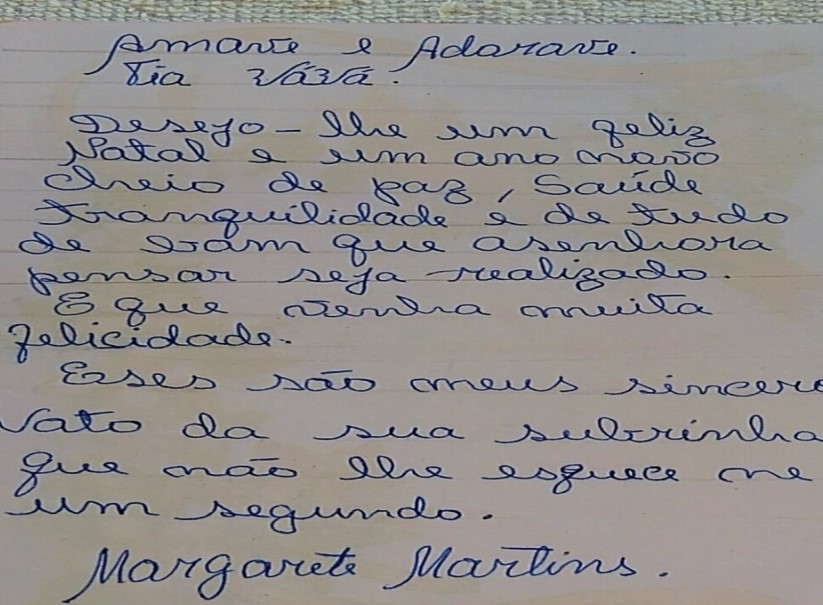 Amave e Adorave.
Tia Vává.
Desejo-lhe um feliz
Natal e um ano novo
cheio de paz, Saúde
tranquilidade e de tudo
de bam que asenhora
pensar seja realizado.
E que venha muita
felicidade.
Esses são meus sincero
Vato da sua subrinha
que não lhe esquece ne
um segundo.
Margarete Martins.